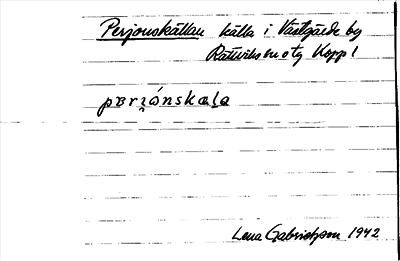 Perjonskällan källa i Västgärde by
Rättviks sn o tg Kopp l
Lena Gabrielsson 1942